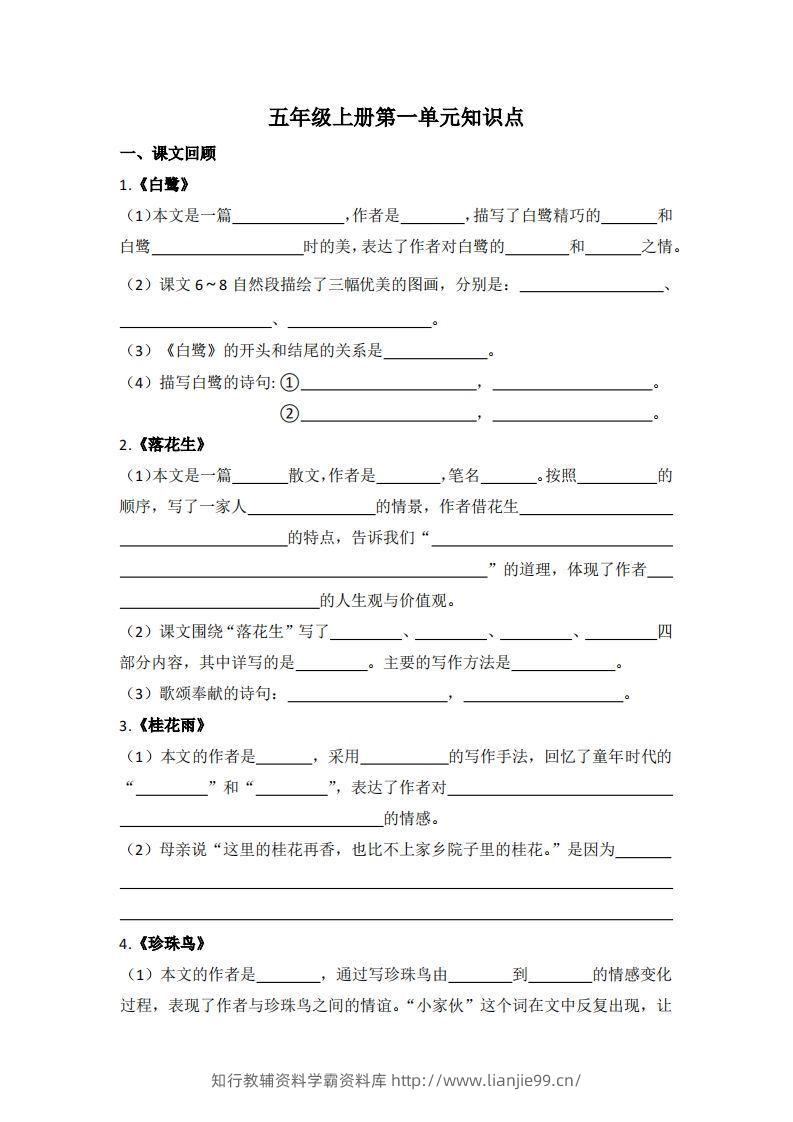 五年级上册第一单元知识点
一、课文回顾
1.《白鹭》
（1）本文是一篇______________，作者是________，描写了白鹭精巧的_______和
白鹭___________________时的美，表达了作者对白鹭的________和_______之情。
（2）课文 6～8 自然段描绘了三幅优美的图画，分别是：__________________、
___________________、__________________。
（3）《白鹭》的开头和结尾的关系是_____________。
（4）描写白鹭的诗句: ①______________________，____________________。
②______________________，____________________。
2.《落花生》
（1）本文是一篇_______散文，作者是________，笔名_______。按照__________的
顺序，写了一家人________________的情景，作者借花生___________________
_____________________的特点，告诉我们“______________________________
______________________________________________”的道理，体现了作者___
_________________________的人生观与价值观。
（2）课文围绕“落花生”写了_________、_________、_________、_________四
部分内容，其中详写的是_________。主要的写作方法是_____________。
（3）歌颂奉献的诗句：____________________，____________________。
3.《桂花雨》
（1）本文的作者是_______，采用___________的写作手法，回忆了童年时代的
“_________”和“_________”，表达了作者对____________________________
_________________________________的情感。
（2）母亲说“这里的桂花再香，也比不上家乡院子里的桂花。”是因为_______
_____________________________________________________________________
_____________________________________________________________________
4.《珍珠鸟》
（1）本文的作者是________，通过写珍珠鸟由________到________的情感变化
过程，表现了作者与珍珠鸟之间的情谊。“小家伙”这个词在文中反复出现，让
知行教辅资料学霸资料库 http://www.lianjie99.cn/